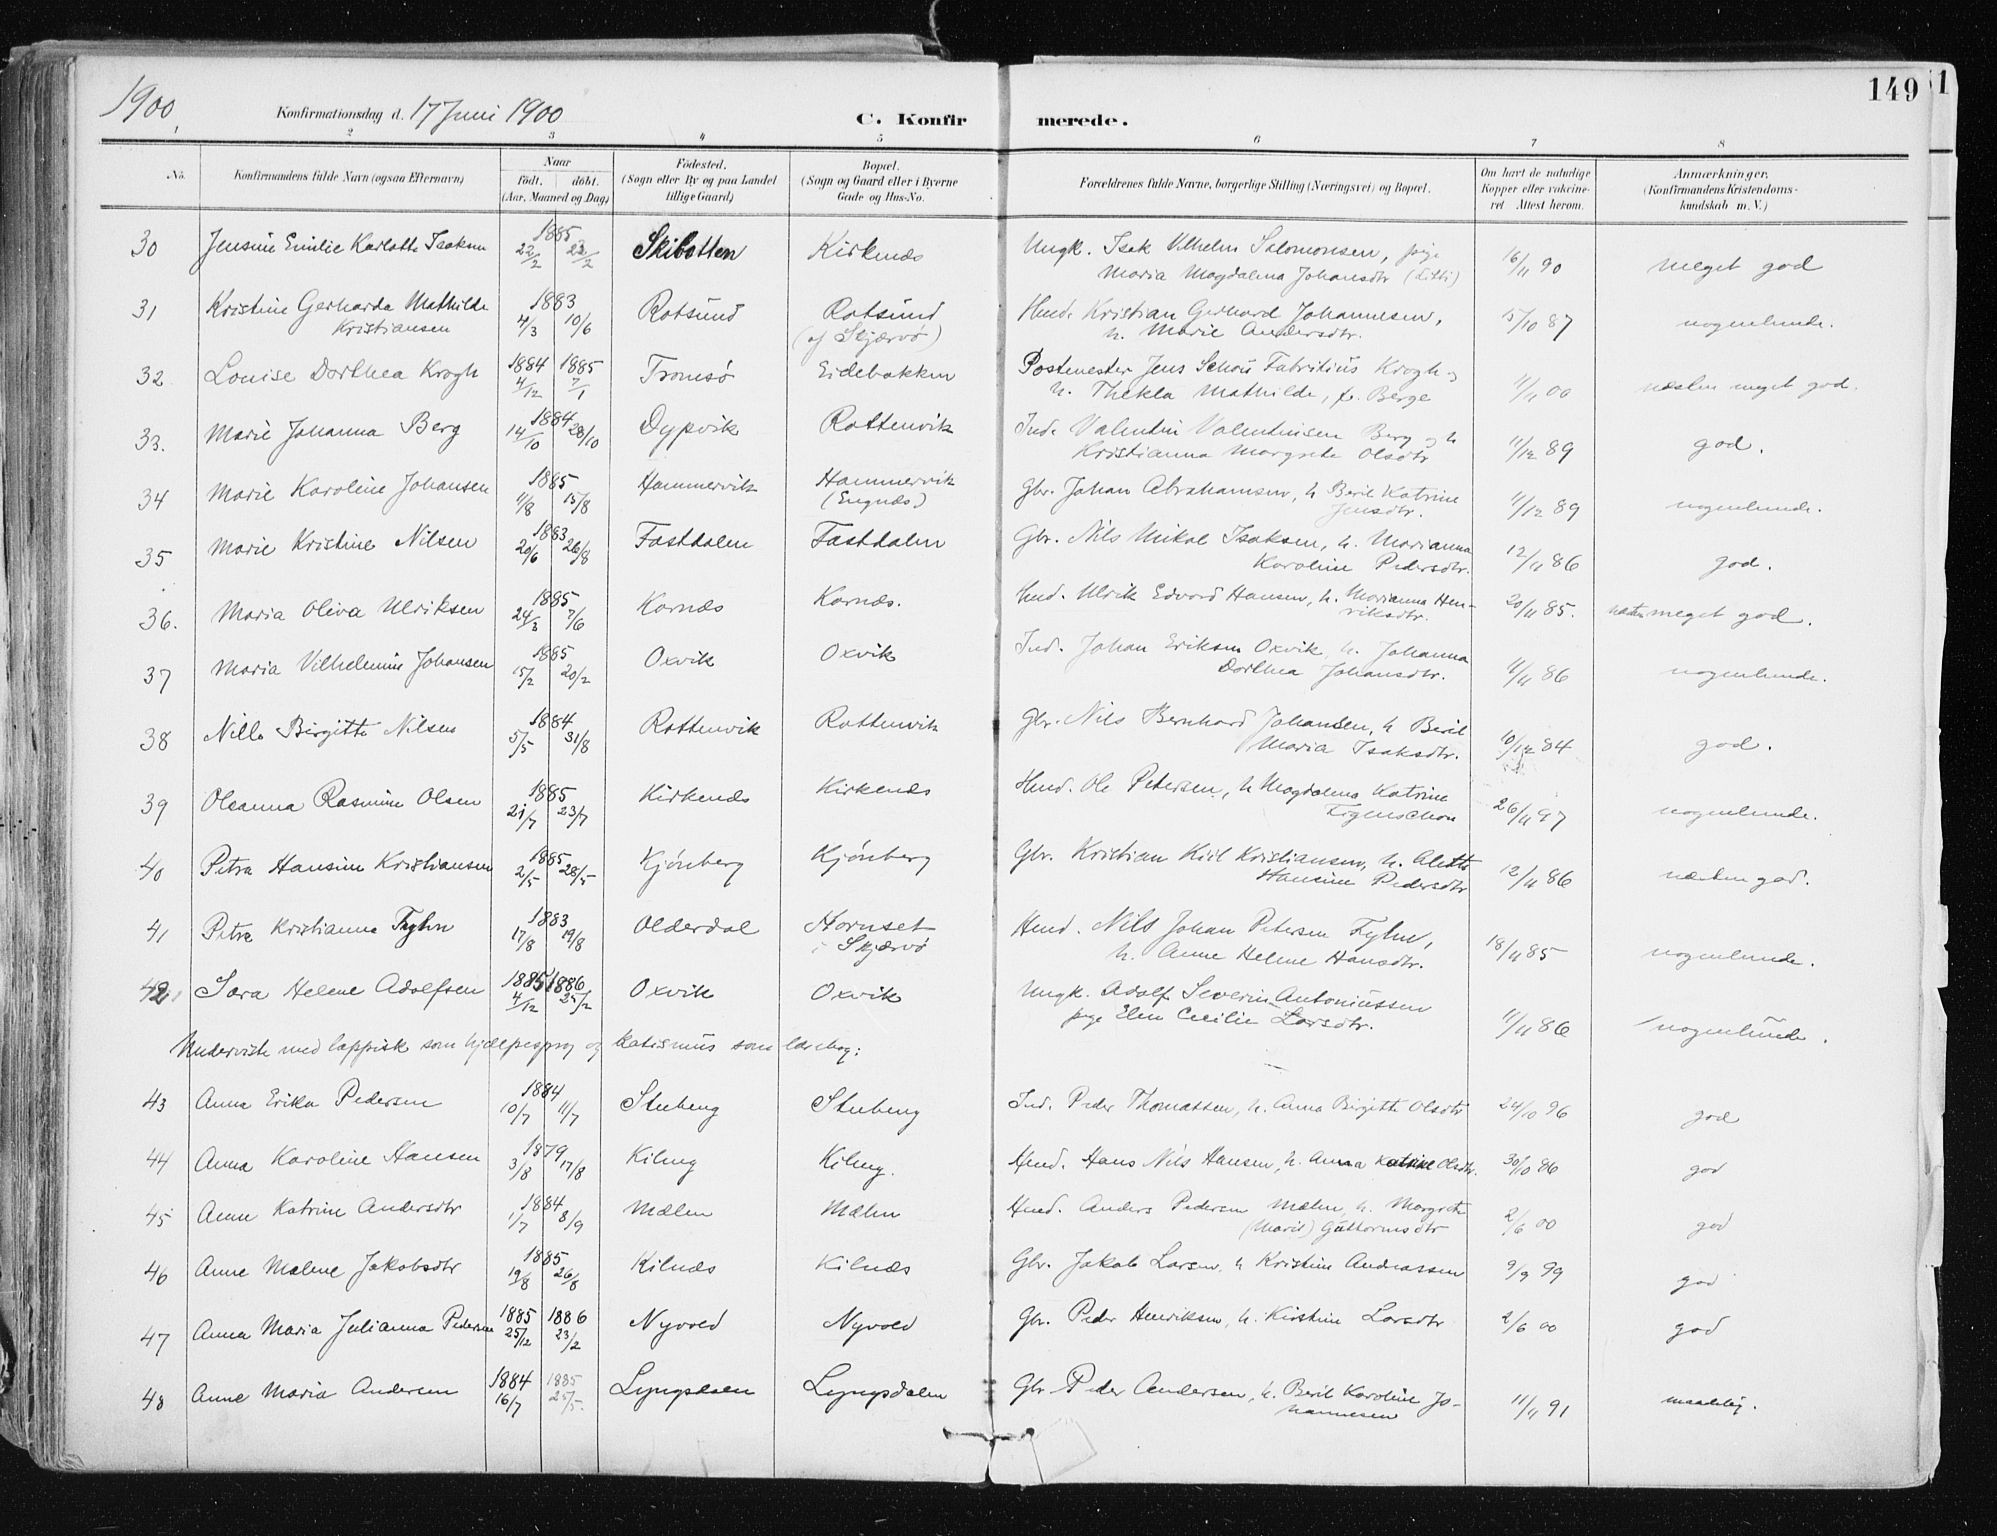 1900, Konfirmationsdag d. 17 Juni 1900 C. Konfirmerede. 149
2 3 4 5 6 7 8
No. Konfirmandens fulde Navn (ogsaa Efternavn) Naar født. døbt. (Aar, Maaned og Dag) Fødested. (Sogn eller By og paa Landet tillige Gaard) Bopæl. (Sogn og Gaard eller i Byerne Gade og Hus-No. Forældrenes fulde Navne, borgerlige Stilling (Næringsvei) og Bopæl. Om havt de naturlige Kopper eller vakcineret Attest herom. Anmærkninger. (Konfirmandens Kristendomskundskab m. V.)
30 Jensine Emilie Karlotte Isaksen 1885 22/2 22/2 Skibotten Kirkenæs Ungk. Isak Vilhelm Salomonsen, pige 16/11 90 meget god
Maria Magdalena Johansdtr (Litti)
31 Kristine Gerharda Mathilde 1883 4/3 10/6 Rotsund Rotsund Huud. Kristian Gerhard Johannesen, 15/10 87 nogenlunde.
Kristiansen (af Skjærvø) h. Marie Andersdtr.
32 Louise Dorthea Krogh 1884 4/12 1885 7/1 Tromsø Eidebakken Postmester Jens Schou Fabritius Krogh og 11/11 00 næsten meget god.
h. Thekla Mathilde, f. Berge
33. Marie Johanna Berg 1884 14/10 28/10 Dypvik Rottenvik Ind. Valentin Valentinsen Berg og h 11/12 89 god.
Kristianna Margrete Olsdtr
34 Marie Karoline Johansen 1885 11/8 15/8 Hammervik Hammervik Gbr. Johan Abrahamsen, h Beril Katrine 11/12 89 nogenlunde.
(Engnæs) Jensdtr.
35 Marie Kristine Nilsen 1883 20/6 26/8 Fastdalen Fastdalen Gbr. Nils Mikal Isaksen, h. Marianna 12/11 86 god.
Karoline Pedersdtr.
36. Maria Oliva Ulriksen 1885 24/3 7/6 Kornæs Kornæs. Huud. Ulrik Edvard Hansen, h. Marianna Hen- 20/11 85. næsten meget god.
riksdtr.
37 Maria Vilhelmine Johansen 1885 15/2 20/2 Oxvik Oxvik Ind. Johan Eriksen Oxvik, h. Johanna 11/11 86 nogenlunde.
Dorthea Johansdtr.
38 Nille Birgitte Nilsen 1884 5/5 31/8 Rottenvik Rottenvik Gbr. Nils Bernhard Johansen, h Beril 10/12 84 god.
Maria Isaksdtr.
39 Oleanna Rasmine Olsen 1885 21/7 23/7 Kirkenæs Kirkenæs Huud. Ole Petersen, h Magdalena Katrine 26/11 97 nogenlunde.
Figenschou
40 Petra Hansine Kristiansen 1885 2/5 28/5 Kjønberg Kjønberg Gbr. Kristian Kiil Kristiansen, h. Alette 12/11 86 næsten god.
Hansine Pedersdtr
41 Petra Kristianna Fyhn 1883 17/8 19/8 Olderdal Hornset Huud. Nils Johan Petersen Fyhn, 18/11 85 nogenlunde.
i Skjærvø h. Anne Helene Hansdtr.
42 Sara Helene Adolfsen 1885 4/12 1886 25/2 Oxvik Oxvik Ungk. Adolf Severin Antoniussen 11/11 86 nogenlunde.
pige Elen Cecilie Larsdtr.
Underviste med lappisk som hjælpesprog og katismus som lærebog:
43 Anna Erika Pedersen 1884 10/7 11/7 Stubeng Stubeng Ind. Peder Thomassen, h. Anna Birgitte Olsdtr 24/10 96 god
44 Anna Karoline Hansen 1879 3/8 17/8 Kileng Kileng. Huud. Hans Nils Hansen, h. Anna Katrine Olsdtr. 30/10 86 god
45 Anne Katrine Andersdtr 1884 1/7 8/9 Mælen Mælen Huud. Anders Pedersen Mælen, h. Margrete 2/6 00 god
(Maril) Guttormsdtr
46 Anne Malene Jakobsdtr 1885 19/8 26/8 Kilnæs Kilnæs Gbr. Jakob Larsen, h Kristine Andreassen 9/9 99 god
47 Anna Maria Julianna Pedersen 1885 25/12 1886 23/2 Nyvold Nyvold Gbr. Peder Henriksen, h. Kirstine Larsdtr 2/6 00 god
48 Anne Maria Andersen 1884 16/7 1885 25/5. Lyngsdalen Lyngsdalen Gbr Peder Andersen, h. Beril Karoline Jo- 11/11 91 maadelig.
hannesen